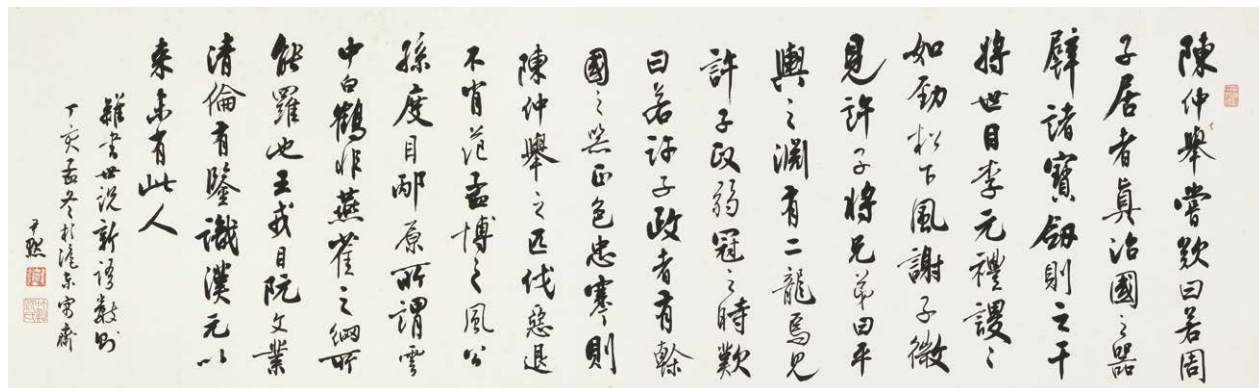 陳仲舉嘗歎曰若周
子居者眞治國之器
譬諸寶劔則之干
將世目李元禮謖〻
如勁松下風謝子微
見許子將兄弟曰平
輿之淵有二龍焉見
許子政弱冠之時歎
曰若許子政者有榦
國之器正色忠謇則
陳仲舉之匹伐惡退
不肖范孟博之風公
孫度目邴原所謂雲
中白鶴非燕雀之網所
能羅也王戎目阮文業
清倫有鑒識漢元以
來未有此人
雜書世说新語數則
丁亥孟冬於滬東寓齋
尹默